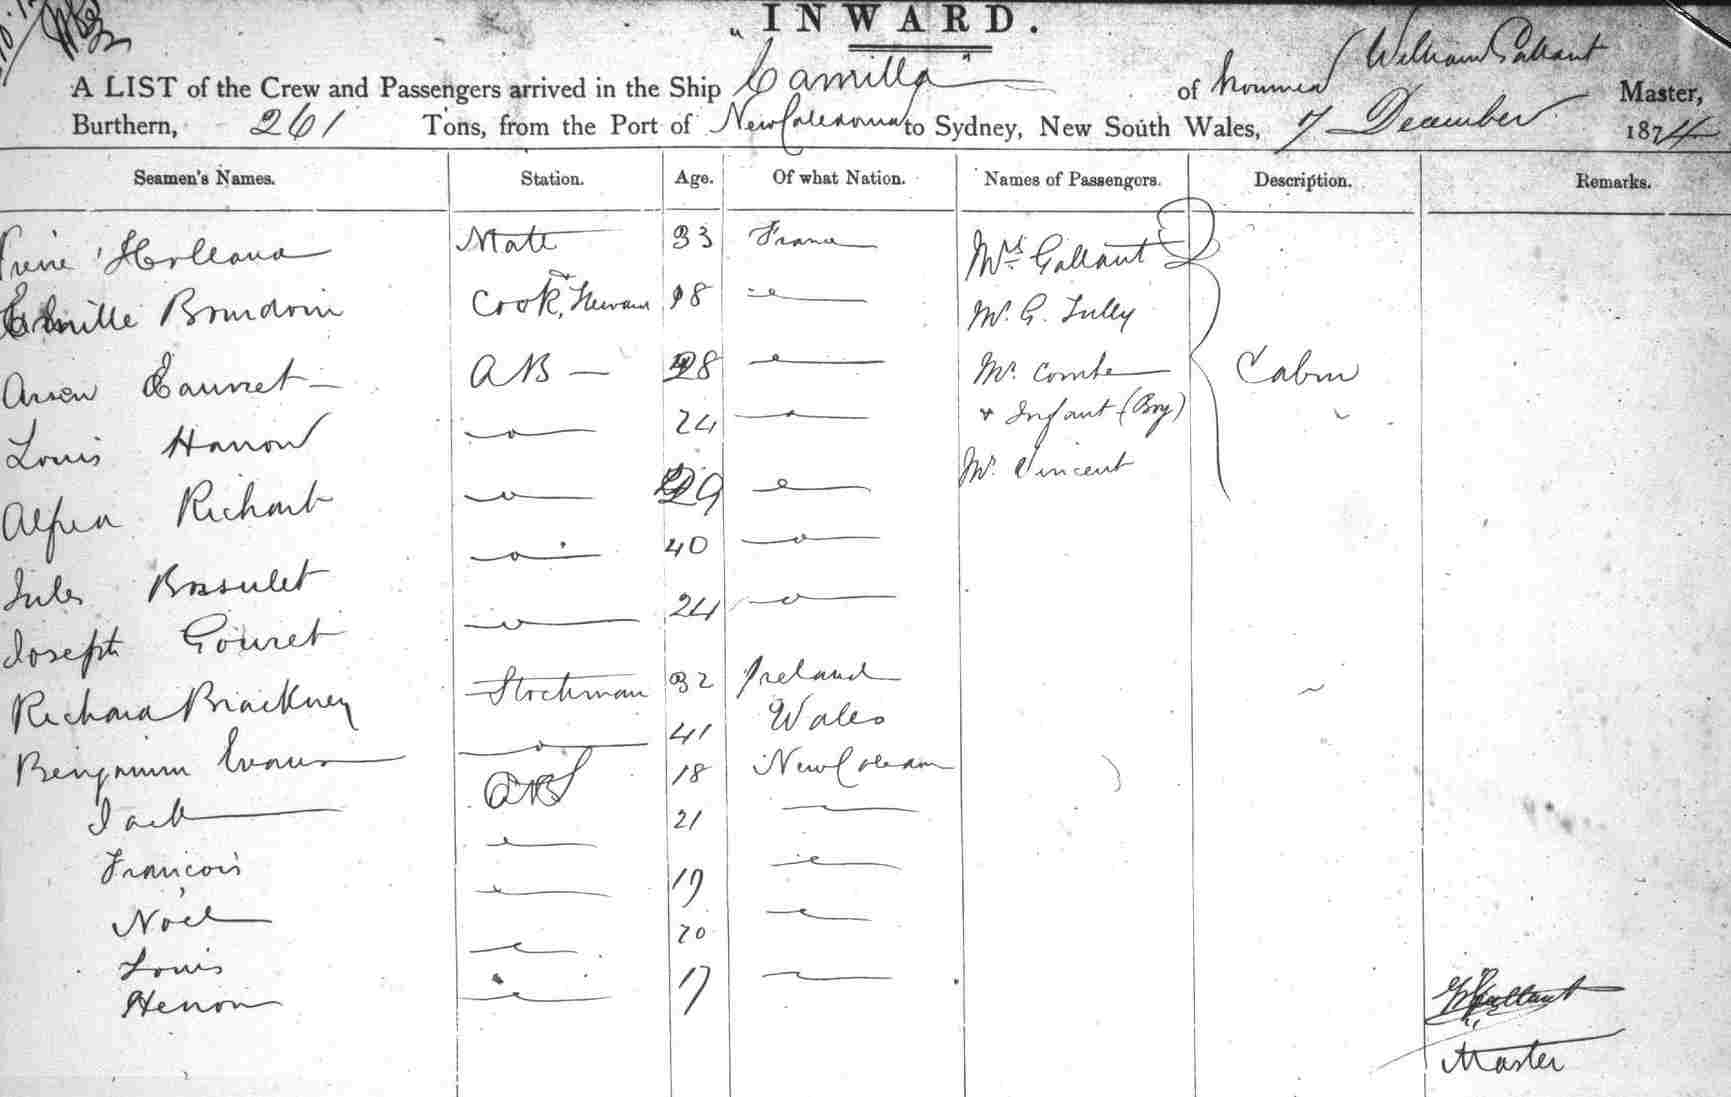 "INWARD.
A LIST of the Crew and Passengers arrived in the Ship "Camilla" of Noumea William Gallant Master,
Burthern, 261 Tons, from the Port of New Caledonia to Sydney, New South Wales, 7 December 1874
Seamen's Names. Station. Age. Of what Nation. Names of Passengers. Description. Remarks.
Mate 33 France Mrs. Gallant
Bourdoin Cook, & Steward 18 — Mr. G. Tully
AB — 28 — Mr. Combe Cabin
Louis Hanon — 24 — & Infant (Boy)
Alfred Richard — 29 — Mr. Vincent
Jules Bossulet — 40 —
Joseph Gouret — 24 —
Richard Brackney Stockman 32 Ireland
Benjamin Evans — 41 Wales
Jack ABS 18 New Caledon
François — 21 —
Noël — 17 —
Louis — 20 —
Henon — 17 —
W Gallant
Master